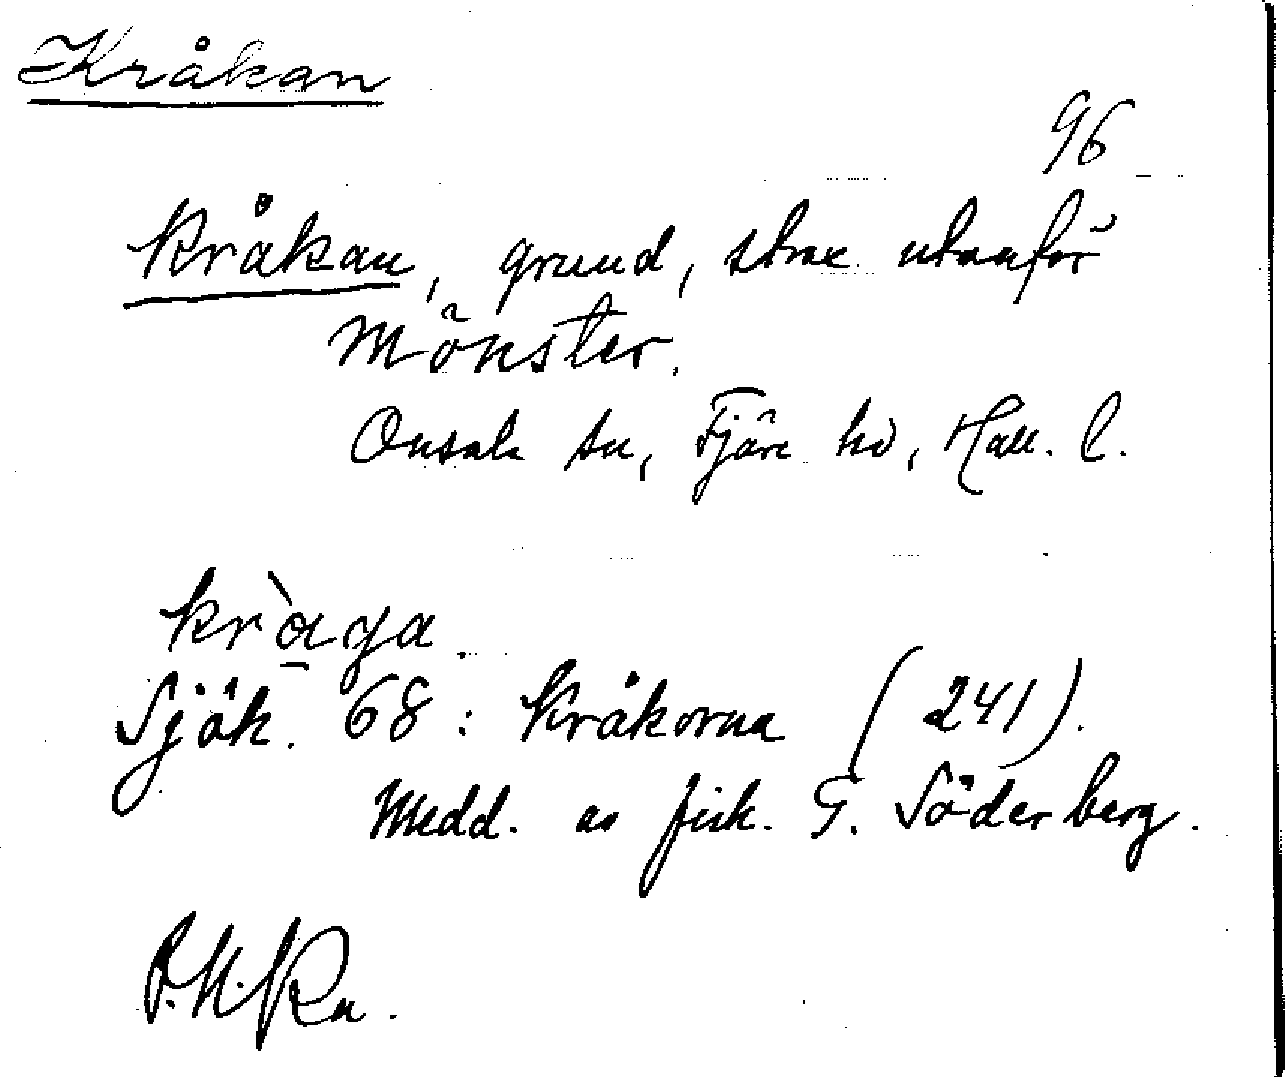 Kråkan
96
Kråkan, grund, strax utanför
Mönster.
Onsala sn, Fjäre hd, Hall. l.
kràga.
Sjök. 68: Kråkorna (241).
Medd. av fisk. G. Söderberg.